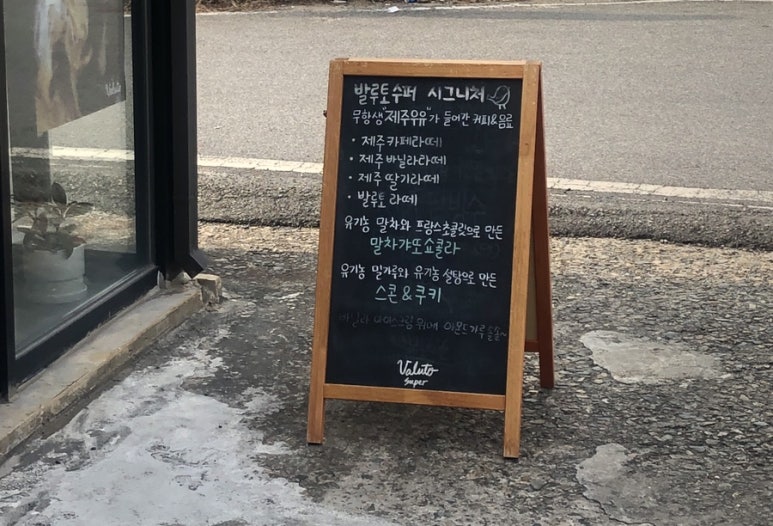 Valuto
발루토수퍼 시그니처
무항생"제주우유"가 들어간 커피&음료
• 제주카페라떼
• 제주바닐라라떼
• 제주딸기라떼
• 발루토라떼
유기농 말차와 프랑스초콜릿으로 만든
말차갸또쇼콜라
유기농 밀가루와 유기농설탕으로 만든
스콘&쿠키
바닐라 아이스크림 위에 아몬드가루솔솔~
Valuto
super